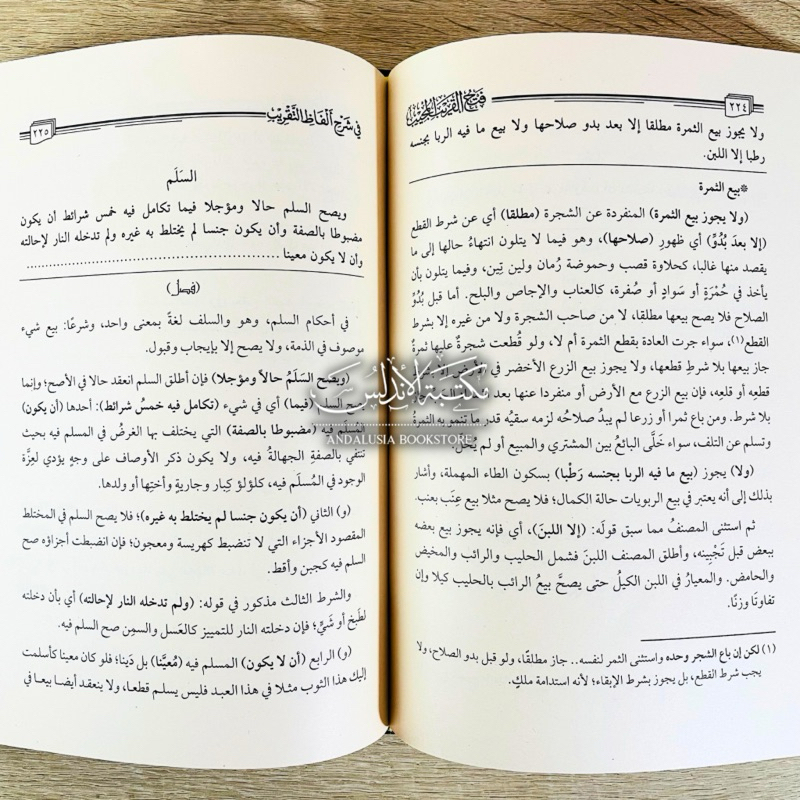 ٢٢٤
فتح القريب المجيب
ولا يجوز بيع الثمرة مطلقا إلا بعد بدو صلاحها ولا بيع ما فيه الربا بجنسه
رطبا إلا اللبن.
* بيع الثمرة
(ولا يجوز بيع الثمرة) المنفردة عن الشجرة (مطلقا) أي عن شرط القطع
(إلا بعدَ بُدُوِّ) أي ظهورِ (صلاحِها)، وهو فيما لا يتلون انتهاءُ حالها إلى ما
يقصد منها غالبا، كحلاوة قصب وحموضة رُمان ولين تِين، وفيما يتلون بأن
يأخذ في حُمْرَةٍ أو سَوادٍ أو صُفرة، كالعناب والإجاص والبلح. أما قبل بُدُوِّ
الصلاح فلا يصح بيعها مطلقا، لا من صاحب الشجرة ولا من غيره إلا بشرط
القطع(١)، سواء جرت العادة بقطع الثمرة أم لا، ولو قُطعت شجرةٌ عليها ثمرةٌ
جاز بيعها بلا شرطِ قطعها، ولا يجوز بيع الزرع الأخضر في الأرض إلا
قطعِه أو قلعِه، فإن بيع الزرع مع الأرض أو منفردا عنها بعد
بلا شرط. ومن باع ثمرا أو زرعا لم يبدُ صلاحُه لزمه سقيُه قدر ما تنمو به الثمرةُ
وتسلم عن التلف، سواء خَلَّى البائعُ بين المشتري والمبيع أو لم يُخَلِّ.
(ولا) يجوز (بيع ما فيه الربا بجنسه رَطْبا) بسكون الطاء المهملة، وأشار
بذلك إلى أنه يعتبر في بيع الربويات حالة الكمال؛ فلا يصح مثلا بيع عِنَب بعنب.
ثم استثنى المصنفُ مما سبق قولَه: (إلا اللبنَ)، أي فإنه يجوز بيع بعضه
ببعض قبل تَجْبِينِه، وأطلق المصنف اللبنَ فشمل الحليب والرائب والمخيض
والحامض. والمعيارُ في اللبن الكيلُ حتى يصحَّ بيعُ الرائب بالحليب كيلا وإن
تفاوتَا وزنًا.
(١) لكن إن باع الشجر وحده واستثنى الثمر لنفسه.. جاز مطلقًا، ولو قبل بدو الصلاح، ولا
يجب شرط القطع، بل يجوز بشرط الإبقاء؛ لأنه استدامة ملكٍ.
في شرح ألفاظ التقريب
٢٢٥
السلَم
ويصح السلم حالا ومؤجلا فيما تكامل فيه خمس شرائط أن يكون
مضبوطا بالصفة وأن يكون جنسا لم يختلط به غيره ولم تدخله النار لإحالته
وأن لا يكون معينا ......
(فصلٌ)
في أحكام السلم، وهو والسلف لغةً بمعنى واحد، وشرعًا: بيع شيء
موصوف في الذمة، ولا يصح إلا بإيجاب وقبول.
(ويصح السَلَمُ حالاً ومؤجلا) فإن أطلق السلم انعقد حالا في الأصح؛ وإنما
يصح السلم (فيما) أي في شيء (تكامل فيه خمسُ شرائط): أحدها (أن يكون)
المسلم فيه (مضبوطا بالصفة) التي يختلف بها الغرضُ في المسلم فيه بحيث
تنتفي بالصفةِ الجهالةُ فيه، ولا يكون ذكر الأوصاف على وجهٍ يؤدي لعِزَّة
الوجود في المُسلَم فيه، كلؤلؤ كِبار وجاريةٍ وأختِها أو ولدها.
(و) الثاني (أن يكون جنسا لم يختلط به غيره)؛ فلا يصح السلم في المختلط
المقصود الأجزاء التي لا تنضبط كهريسة ومعجون؛ فإن انضبطت أجزاؤه صح
السلم فيه كجبن وأقط.
والشرط الثالث مذكور في قوله: (ولم تدخله النار لإحالته) أي بأن دخلته
لطبخ أو شَيٍّ؛ فإن دخلته النار للتمييز كالعَسل والسمن صح السلم فيه.
(و) الرابع (أن لا يكون) المسلم فيه (مُعيَّنا) بل دَينا؛ فلو كان معينا كأسلمت
إليك هذا الثوب مثلا في هذا العبد فليس بسلم قطعا، ولا ينعقد أيضا بيعا في
مكتبة الأندلس
ANDALUSIA BOOKSTORE